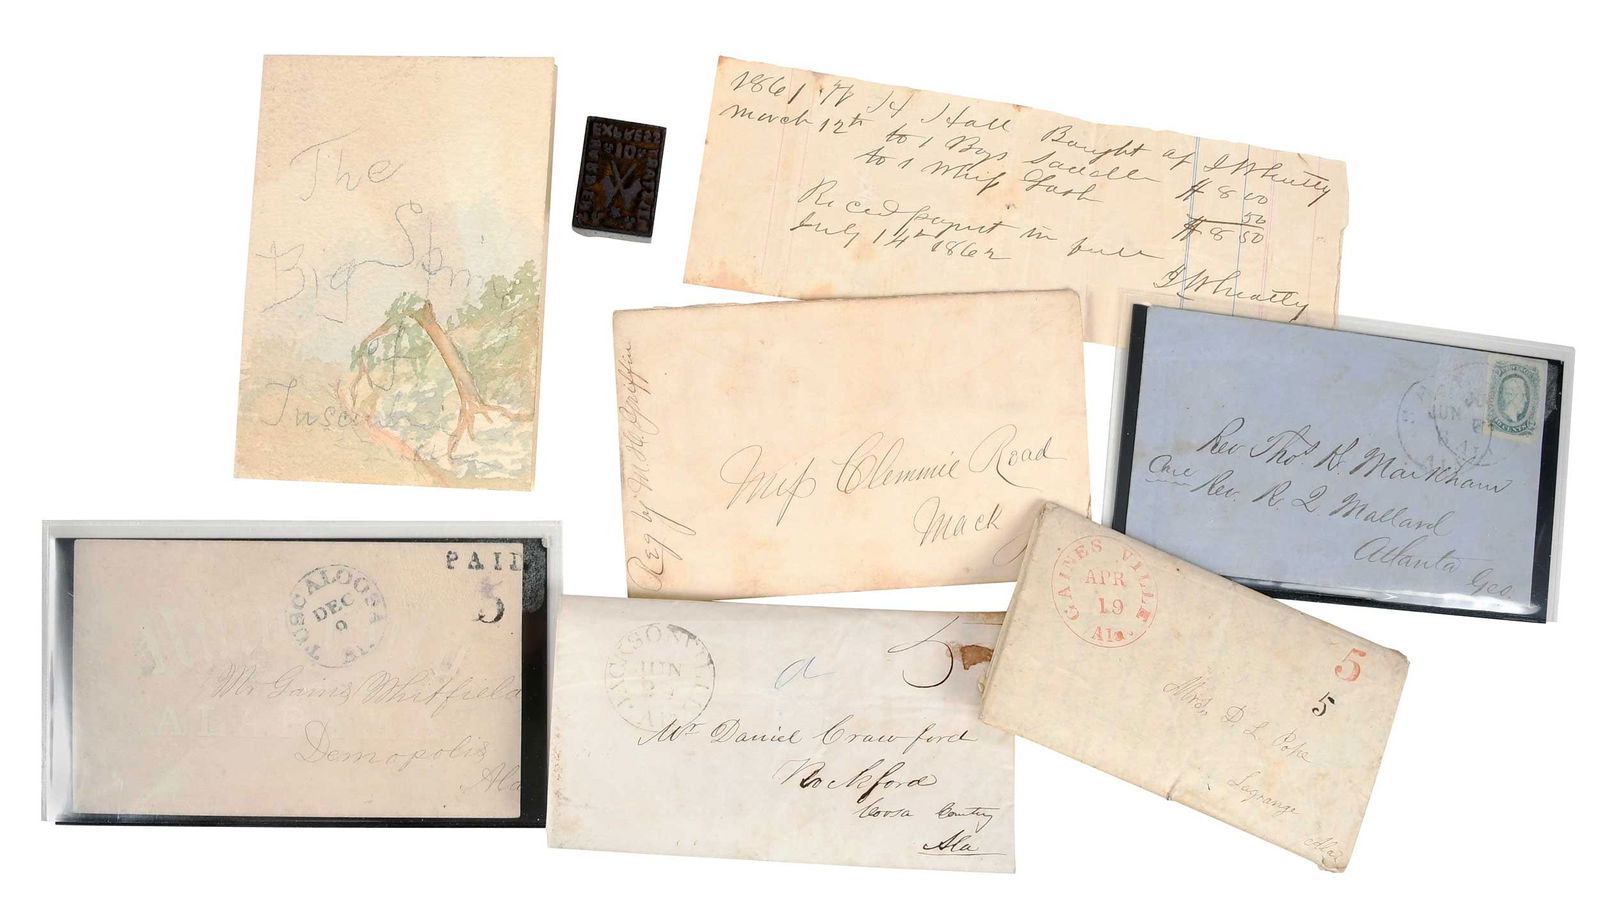 The
Big Spring
1861 W H Hall Bought of J Wheatly
March 12th to 1 Boys Saddle $8 00
to 1 Whip Lash 50
$8 50
Reced payment in full
July 14th 1862
J Wheatly
EXPRESS
10
Reg by M. H. Griffin
Miss Clemmie Road
Mack
JUN
Rev. Thos R. Markham
Care Rev. R. Q. Mallard
Atlanta Geo.
PAID
5
TUSCALOOSA
DEC
9
Mr Gains Whitfield
Demopolis
Ala
JACKSONVILLE
JUN
5
Mr Daniel Crawford
Rockford
Coosa County
Ala
GAINESVILLE
APR
19
Ala.
5
5
Mrs. D. L. Pope
Lagrange
Ala